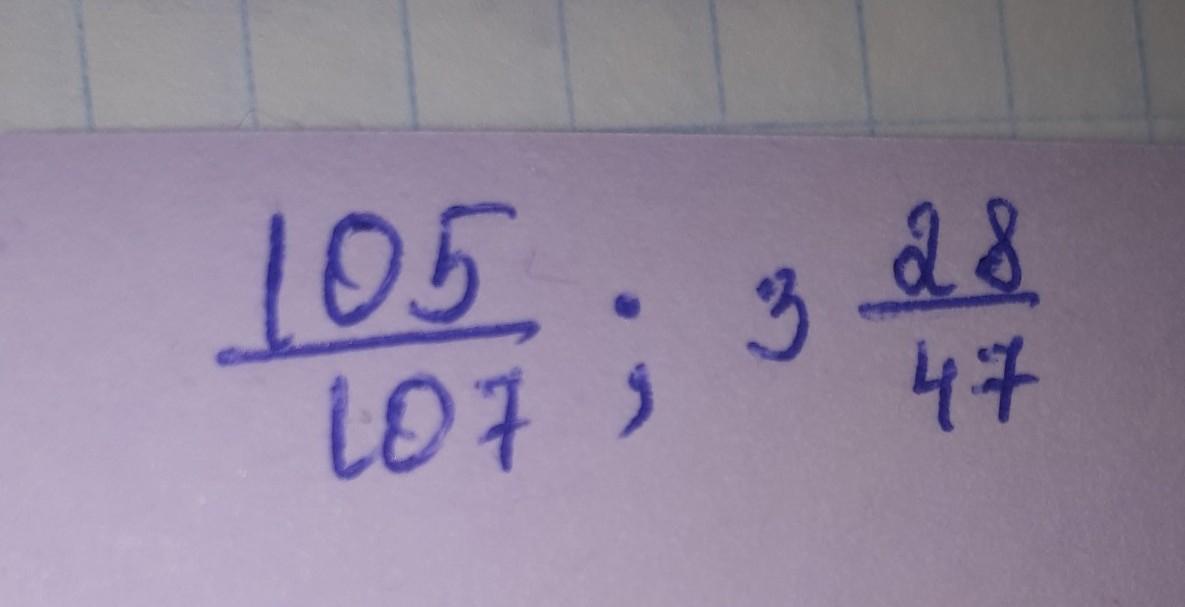 105/107 ; 3 28/47